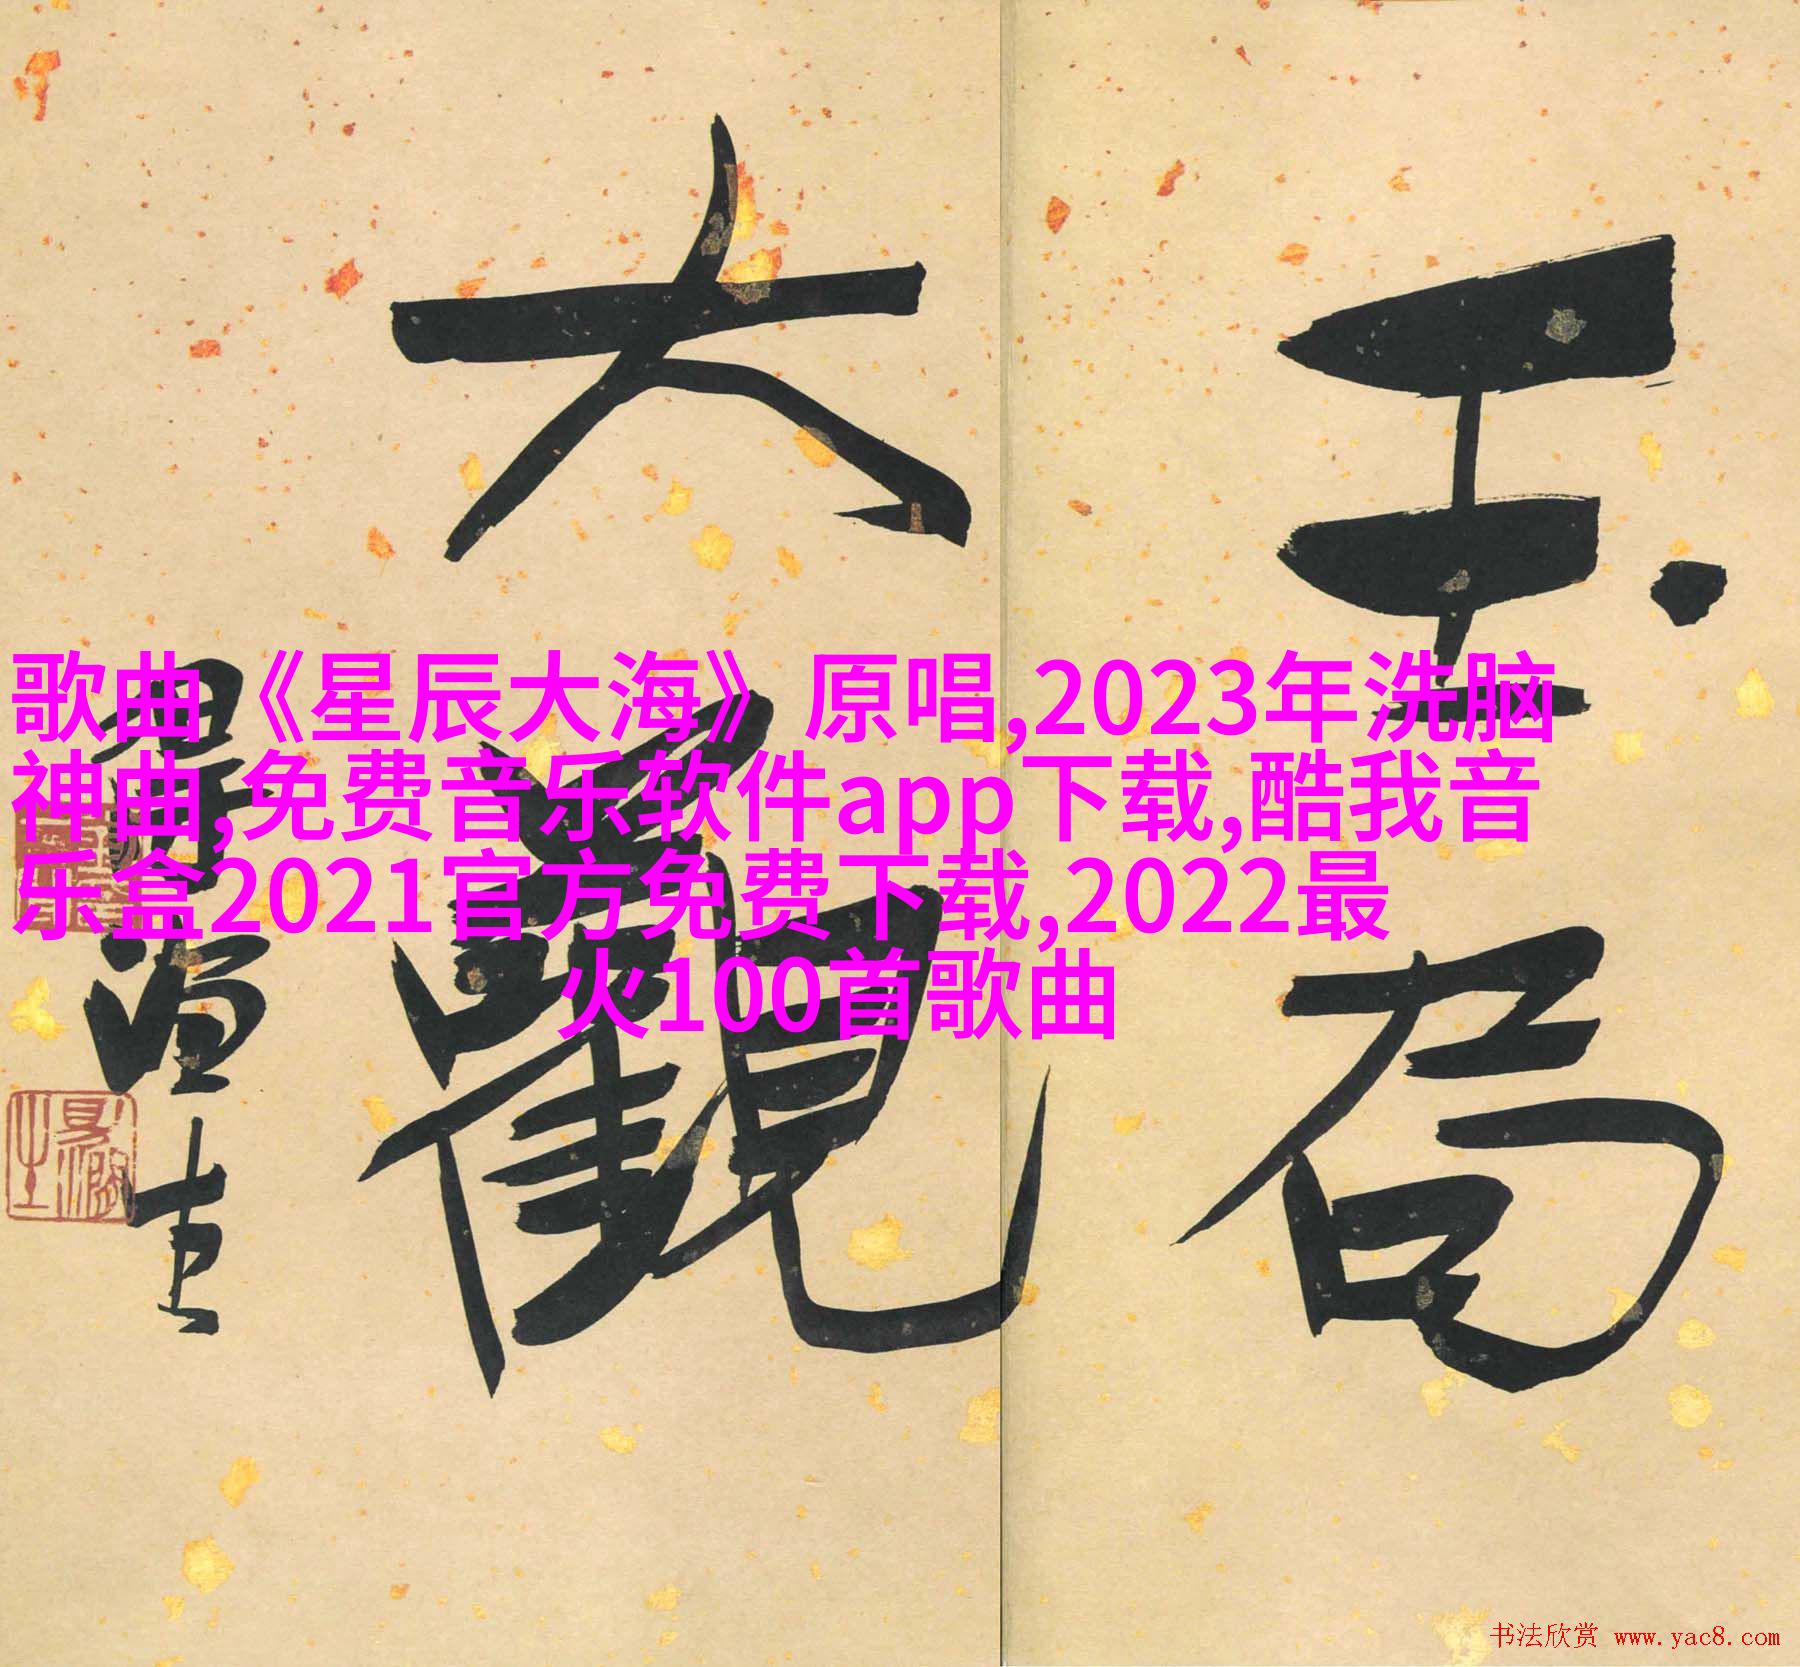 玉局
大觀
歌曲《星辰大海》原唱,2023年洗脑
神曲,免费音乐软件app下载,酷我音
乐盒2021官方免费下载,2022最
火100首歌曲
书法欣赏 www.yac8.com